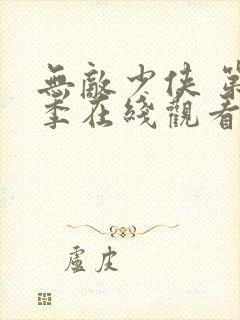 無敵少俠 第
季在綫觀看
盧皮